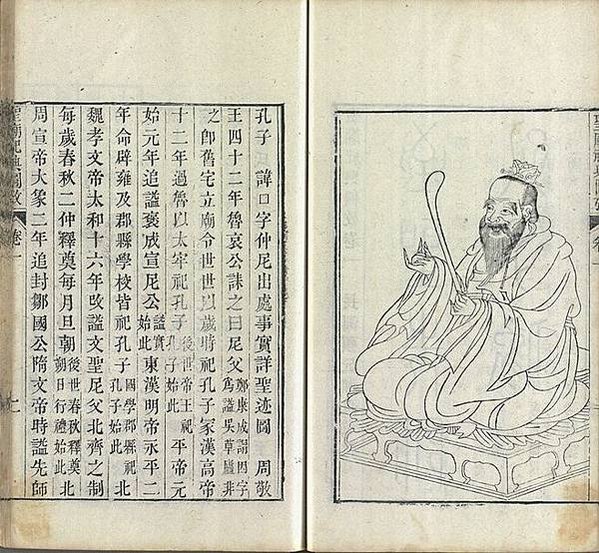 聖廟祀典圖攷 卷一
孔子 諱口字仲尼出處事實詳聖迹圖 周敬
王四十二年魯哀公誄之曰尼父 鄭康成謂因字為諡吳草廬非
之卽舊宅立廟令世世以歲時祀孔子家漢高帝
十二年過魯以太牢祀孔子 後世帝王祀孔子始此 平帝元
始元年追諡褒成宣尼公 諡實始此 東漢明帝永平二
年命辟雍及郡縣學校皆祀孔子 國學郡縣祀孔子始此 北
魏孝文帝太和十六年改諡文聖尼父北齊之制
每歲春秋二仲釋奠每月旦朝 後世春秋釋奠朔日行禮始此 北
周宣帝大象二年追封鄒國公隋文帝時諡先師
聖廟祀典圖攷 卷一